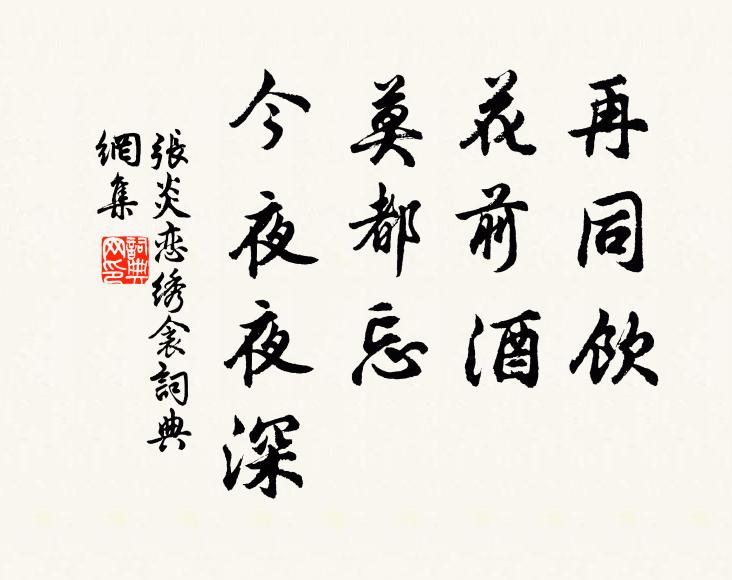 再同飲
花前酒
莫都忘
今夜夜深
張炎恋绣衾詞典
網集
詞典
网印